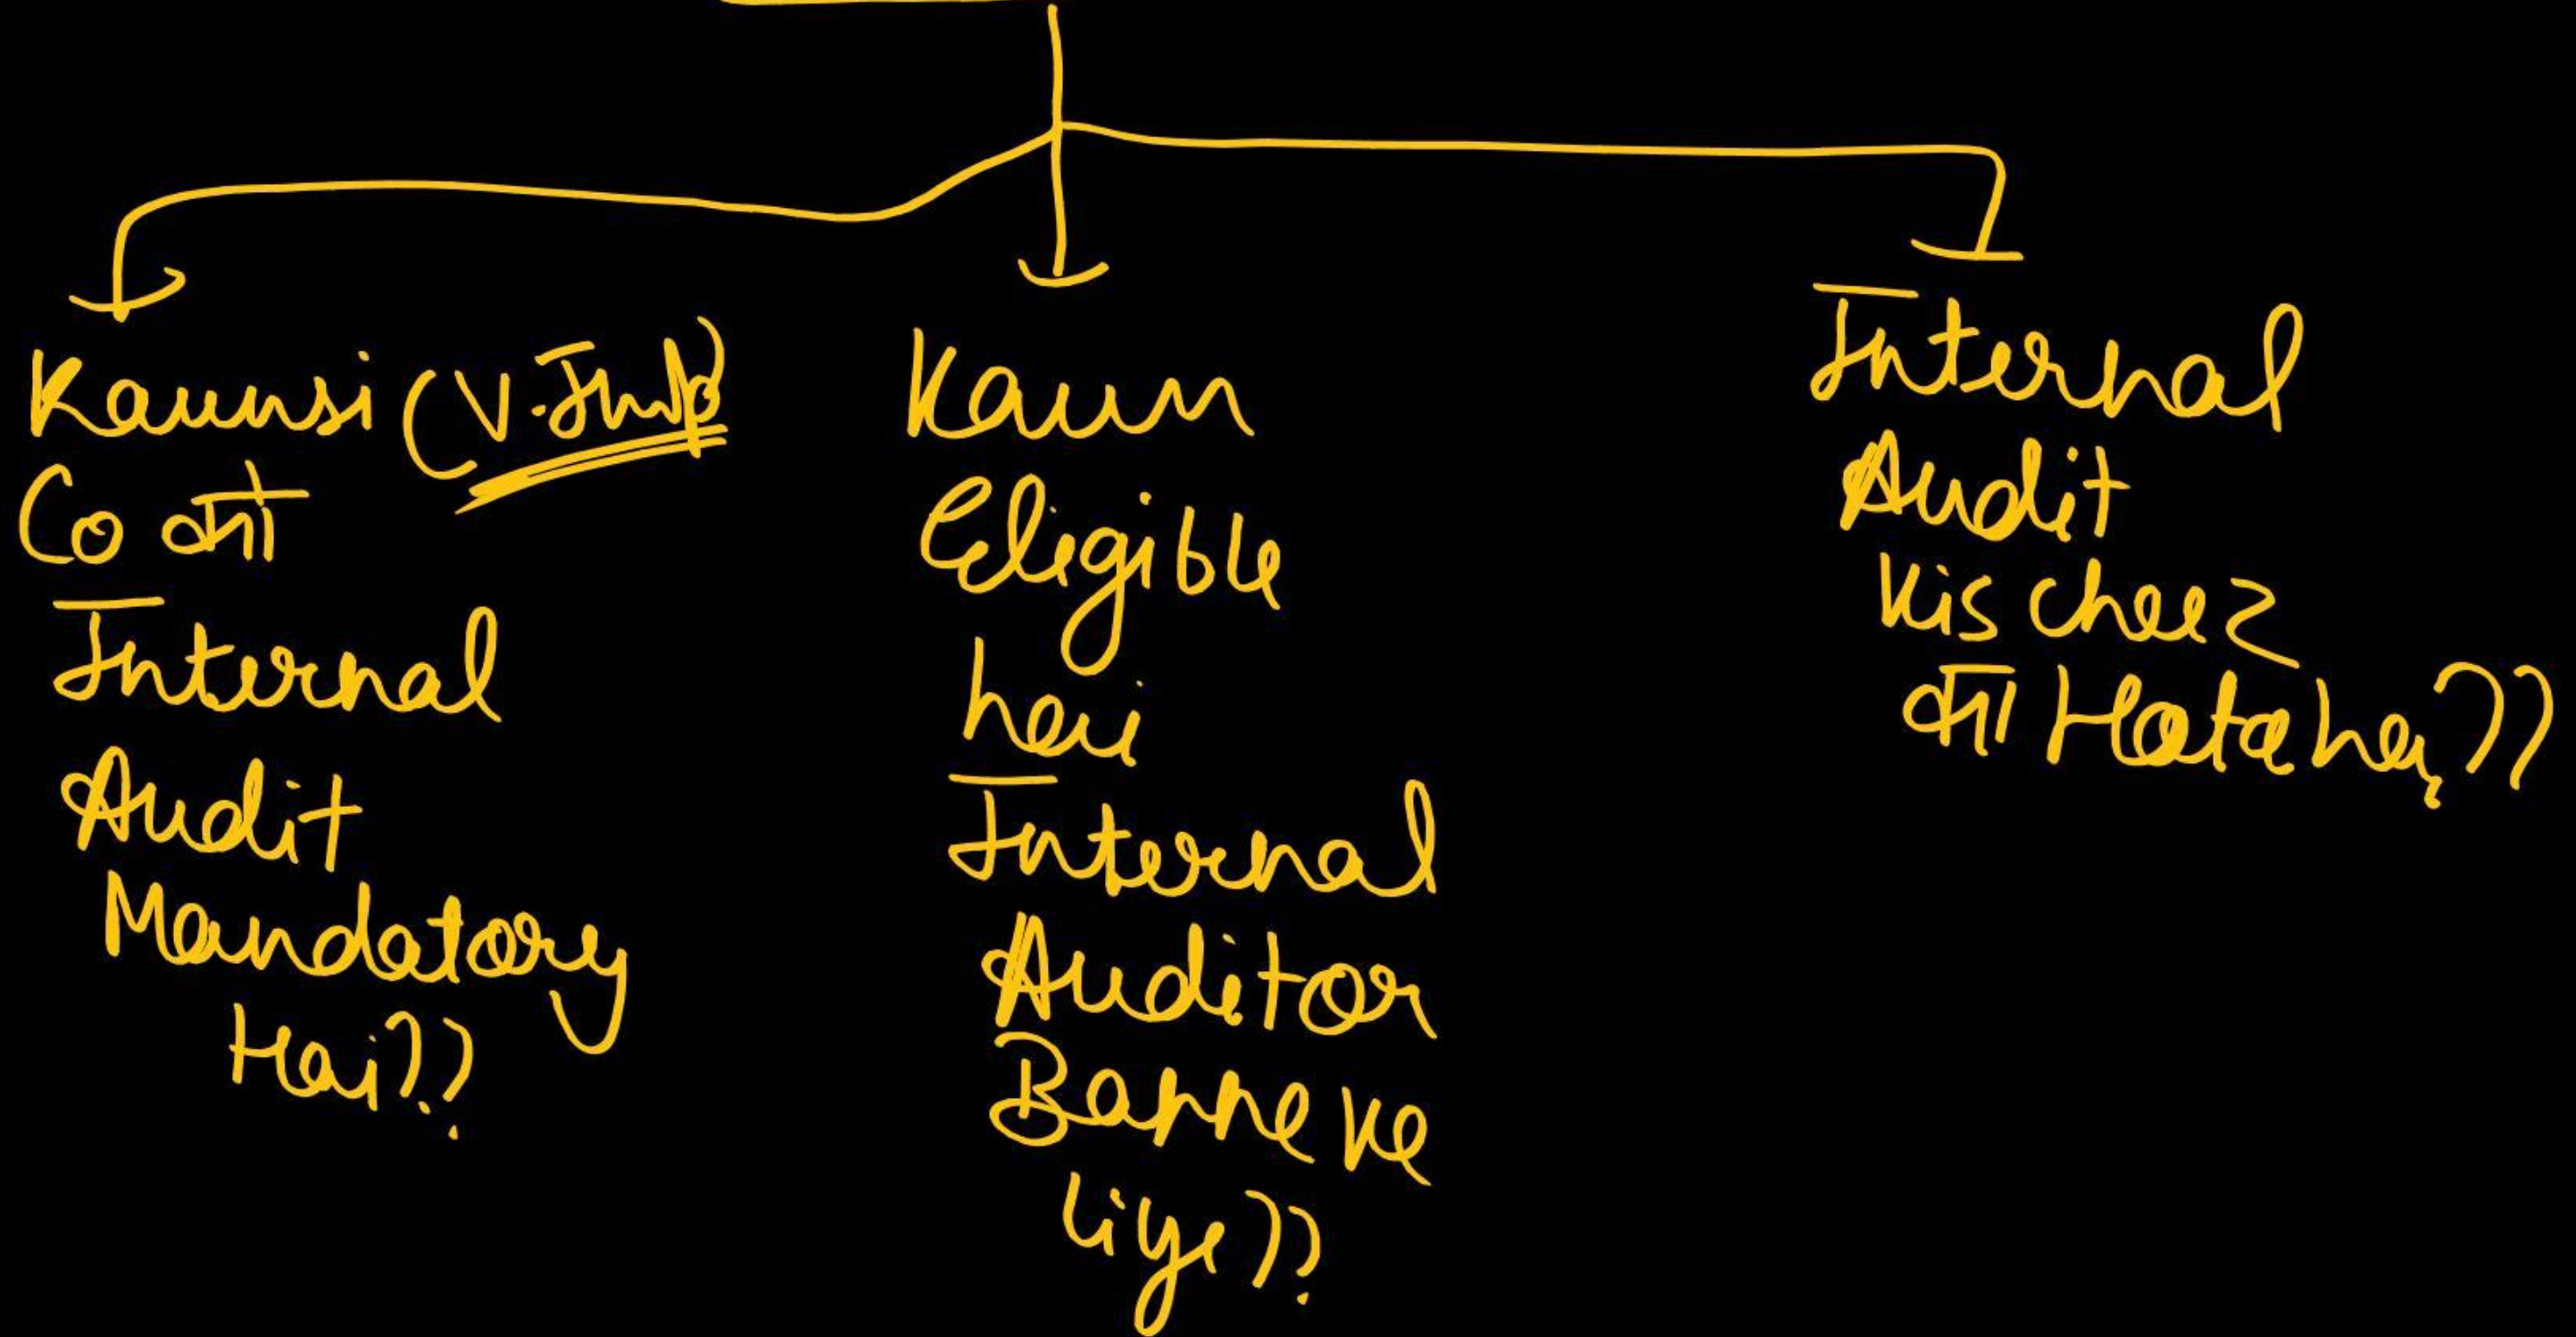 Kaunsi (V. Imp)
Co का
Internal
Audit
Mandatory
Hai??
Kaun
Eligible
hai
Internal
Auditor
Banne ke
liye??
Internal
Audit
Kis cheez
का Hota hai??